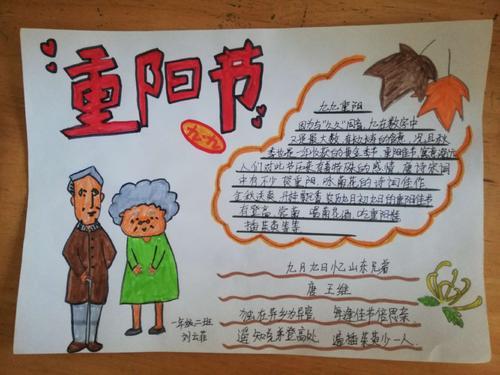 重阳节
九·九
九九重阳
因为与"久久"同音，九在数字中
又是最大数，有长久长寿的含意，况且秋
季也是一年收获的黄金季节，重阳佳节，寓意深远
人们对此节历来有着特殊的感情，唐诗宋词
中有不少贺重阳，咏菊花的诗词佳作
登高，赏菊，喝菊花酒，吃重阳糕
插茱萸等等
九月九日忆山东兄弟
唐 王维
独在异乡为异客 每逢佳节倍思亲
遥知兄弟登高处 遍插茱萸少一人.
一年级二班
刘云菲